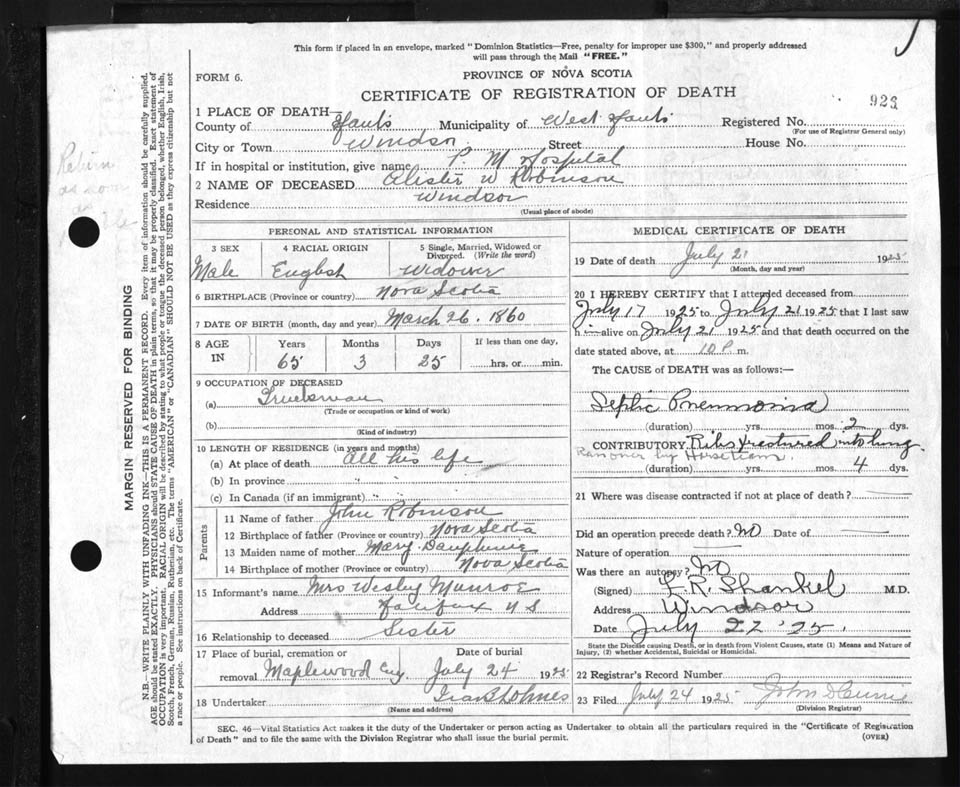 This form if placed in an envelope, marked "Dominion Statistics—Free, penalty for improper use $300," and properly addressed
will pass through the Mail "FREE."
FORM 6.
PROVINCE OF NOVA SCOTIA
CERTIFICATE OF REGISTRATION OF DEATH
923
1 PLACE OF DEATH—
County of Hants Municipality of West Hants Registered No.
(For use of Registrar General only)
City or Town Windsor Street House No.
If in hospital or institution, give name P. M Hospital
2 NAME OF DECEASED Alister W Robinson
Residence Windsor
(Usual place of abode)
PERSONAL AND STATISTICAL INFORMATION
3 SEX 4 RACIAL ORIGIN 5 Single, Married, Widowed or Divorced. (Write the word)
Male English Widower
6 BIRTHPLACE (Province or country) Nova Scotia
7 DATE OF BIRTH (month, day and year) March 26. 1860
8 AGE IN Years Months Days If less than one day,
65 3 25 hrs. or min.
9 OCCUPATION OF DECEASED
(a) Truckman
(Trade or occupation or kind of work)
(b)
(Kind of industry)
10 LENGTH OF RESIDENCE (in years and months)
(a) At place of death All his life
(b) In province " "
(c) In Canada (if an immigrant) " "
Parents
11 Name of father John Robinson
12 Birthplace of father (Province or country) Nova Scotia
13 Maiden name of mother Mary Dauphinie
14 Birthplace of mother (Province or country) Nova Scotia
15 Informant's name Mrs Wesley Munroe
Address Halifax N S
16 Relationship to deceased Sister
17 Place of burial, cremation or removal Maplewood Date of burial July 24 1925
18 Undertaker
(Name and address)
MEDICAL CERTIFICATE OF DEATH
19 Date of death July 21 1925
(Month, day and year)
20 I HEREBY CERTIFY that I attended deceased from
July 17 1925 to July 21 1925 that I last saw
him alive on July 21 1925 and that death occurred on the
date stated above, at 10 P. m.
The CAUSE of DEATH was as follows:—
Septic Pneumonia
(duration) yrs. mos. 2 dys.
CONTRIBUTORY Ribs fractured into lung
Ran over by Horseteam.
(duration) yrs. mos. 4 dys.
21 Where was disease contracted if not at place of death?
Did an operation precede death? No Date of
Nature of operation
Was there an autopsy? No
(Signed) L. R. Shankel M.D.
Address Windsor
Date July 22 '25.
State the Disease causing Death, or in death from Violent Causes, state (1) Means and Nature of
Injury, (2) whether Accidental, Suicidal or Homicidal.
22 Registrar's Record Number
23 Filed July 24 1925 John D Currie
(Division Registrar)
SEC. 46—Vital Statistics Act makes it the duty of the Undertaker or person acting as Undertaker to obtain all the particulars required in the "Certificate of Registration
of Death" and to file the same with the Division Registrar who shall issue the burial permit.
(OVER)
MARGIN RESERVED FOR BINDING
N.B.—WRITE PLAINLY WITH UNFADING INK—THIS IS A PERMANENT RECORD. Every item of information should be carefully supplied.
AGE should be stated EXACTLY. PHYSICIANS should STATE CAUSE OF DEATH in plain terms, so that it may be properly classified. Exact statement of
OCCUPATION is very important. RACIAL ORIGIN will be described by stating to what people or tongue the deceased person belonged, whether English, Irish,
Scotch, French, German, Russian, Ruthenian, etc. The terms "AMERICAN" or "CANADIAN" SHOULD NOT BE USED as they express citizenship but not
a race or people. See instructions on back of Certificate.
Return
as soon
as